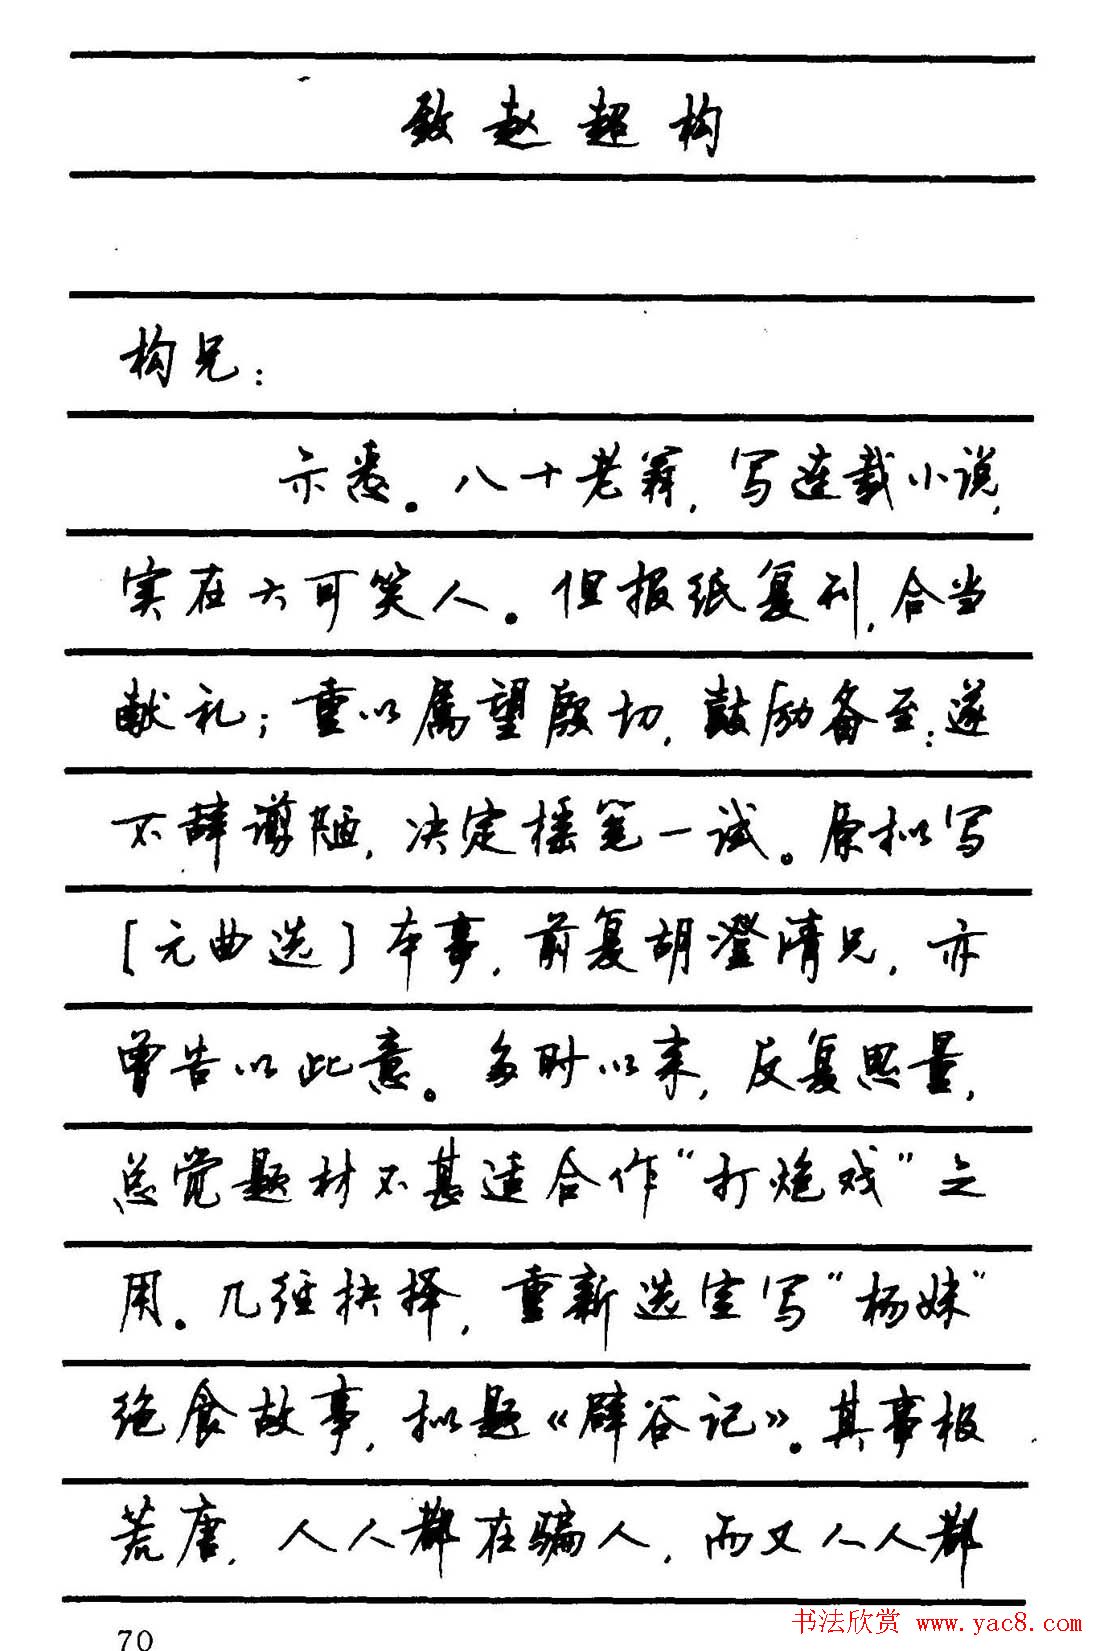 致赵超构
构兄：
示悉。八十老翁，写连载小说，
实在大可笑人。但报纸复刊，合当
献礼；重以属望殷切，鼓励备至；遂
不辞谫陋，决定摇笔一试。原拟写
[元曲选]本事，前复胡澄清兄，亦
曾告以此意。多时以来，反复思量，
总觉题材不甚适合作“打炮戏”之
用。几经抉择，重新选定写“杨妹”
绝食故事，拟题《辟谷记》。其事极
荒唐，人人都在骗人，而又人人都
70
书法欣赏 www.yac8.com